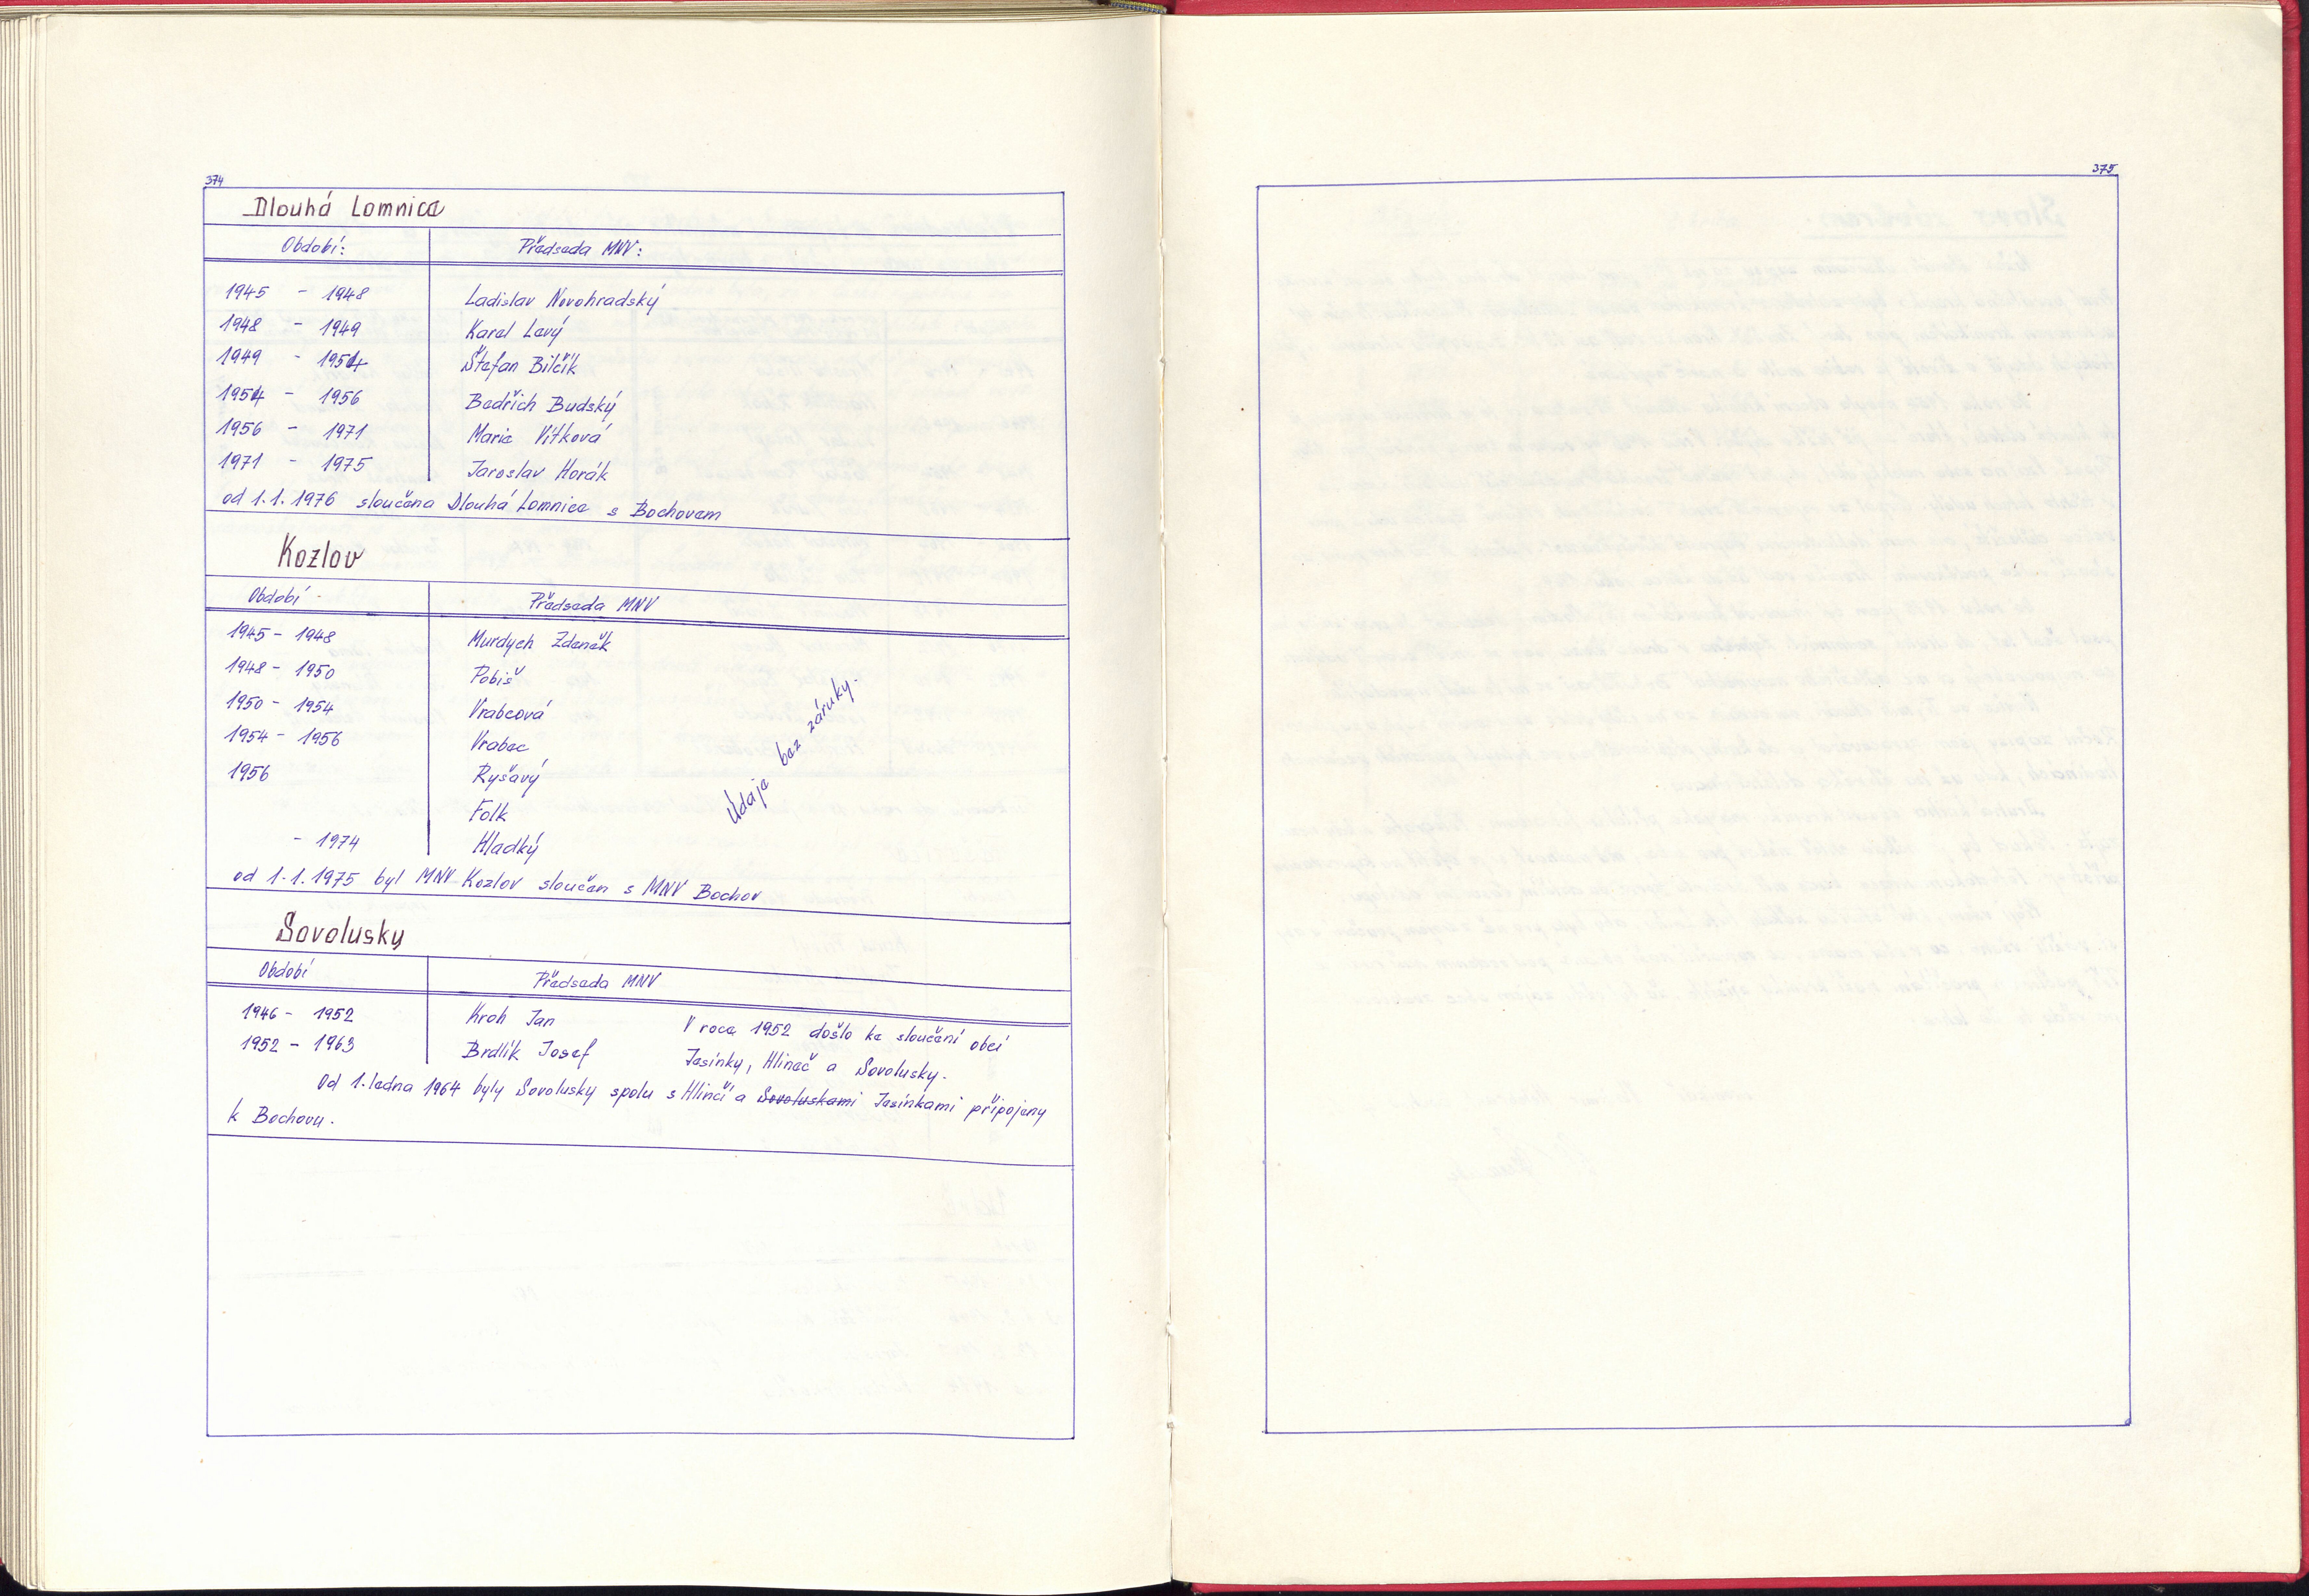 374
Dlouhá Lomnice
Období: Předseda MNV:
1945 - 1948 Ladislav Novohradský
1948 - 1949 Karel Levý
1949 - 1954 Štefan Bilčík
1954 - 1956 Bedřich Budský
1956 - 1971 Marie Vítková
1971 - 1975 Jaroslav Horák
od 1.1.1976 sloučena Dlouhá Lomnice s Bochovem
Kozlov
Období - Předseda MNV
1945 - 1948 Murdych Zdeněk
1948 - 1950 Pobiš
1950 - 1954 Vrabcová
1954 - 1956 Vrabec
1956 Ryšavý
Folk
- 1974 Hladký
Údaje bez záruky.
od 1.1.1975 byl MNV Kozlov sloučen s MNV Bochov
Sovolusky
Období Předseda MNV
1946 - 1952 Kroh Jan V roce 1952 došlo ke sloučení obcí
1952 - 1963 Brdlík Josef Jesínky, Hlineč a Sovolusky.
Od 1. ledna 1964 byly Sovolusky spolu s Hlinčí a Sovoluskami Jesínkami připojeny
k Bochovu.
375